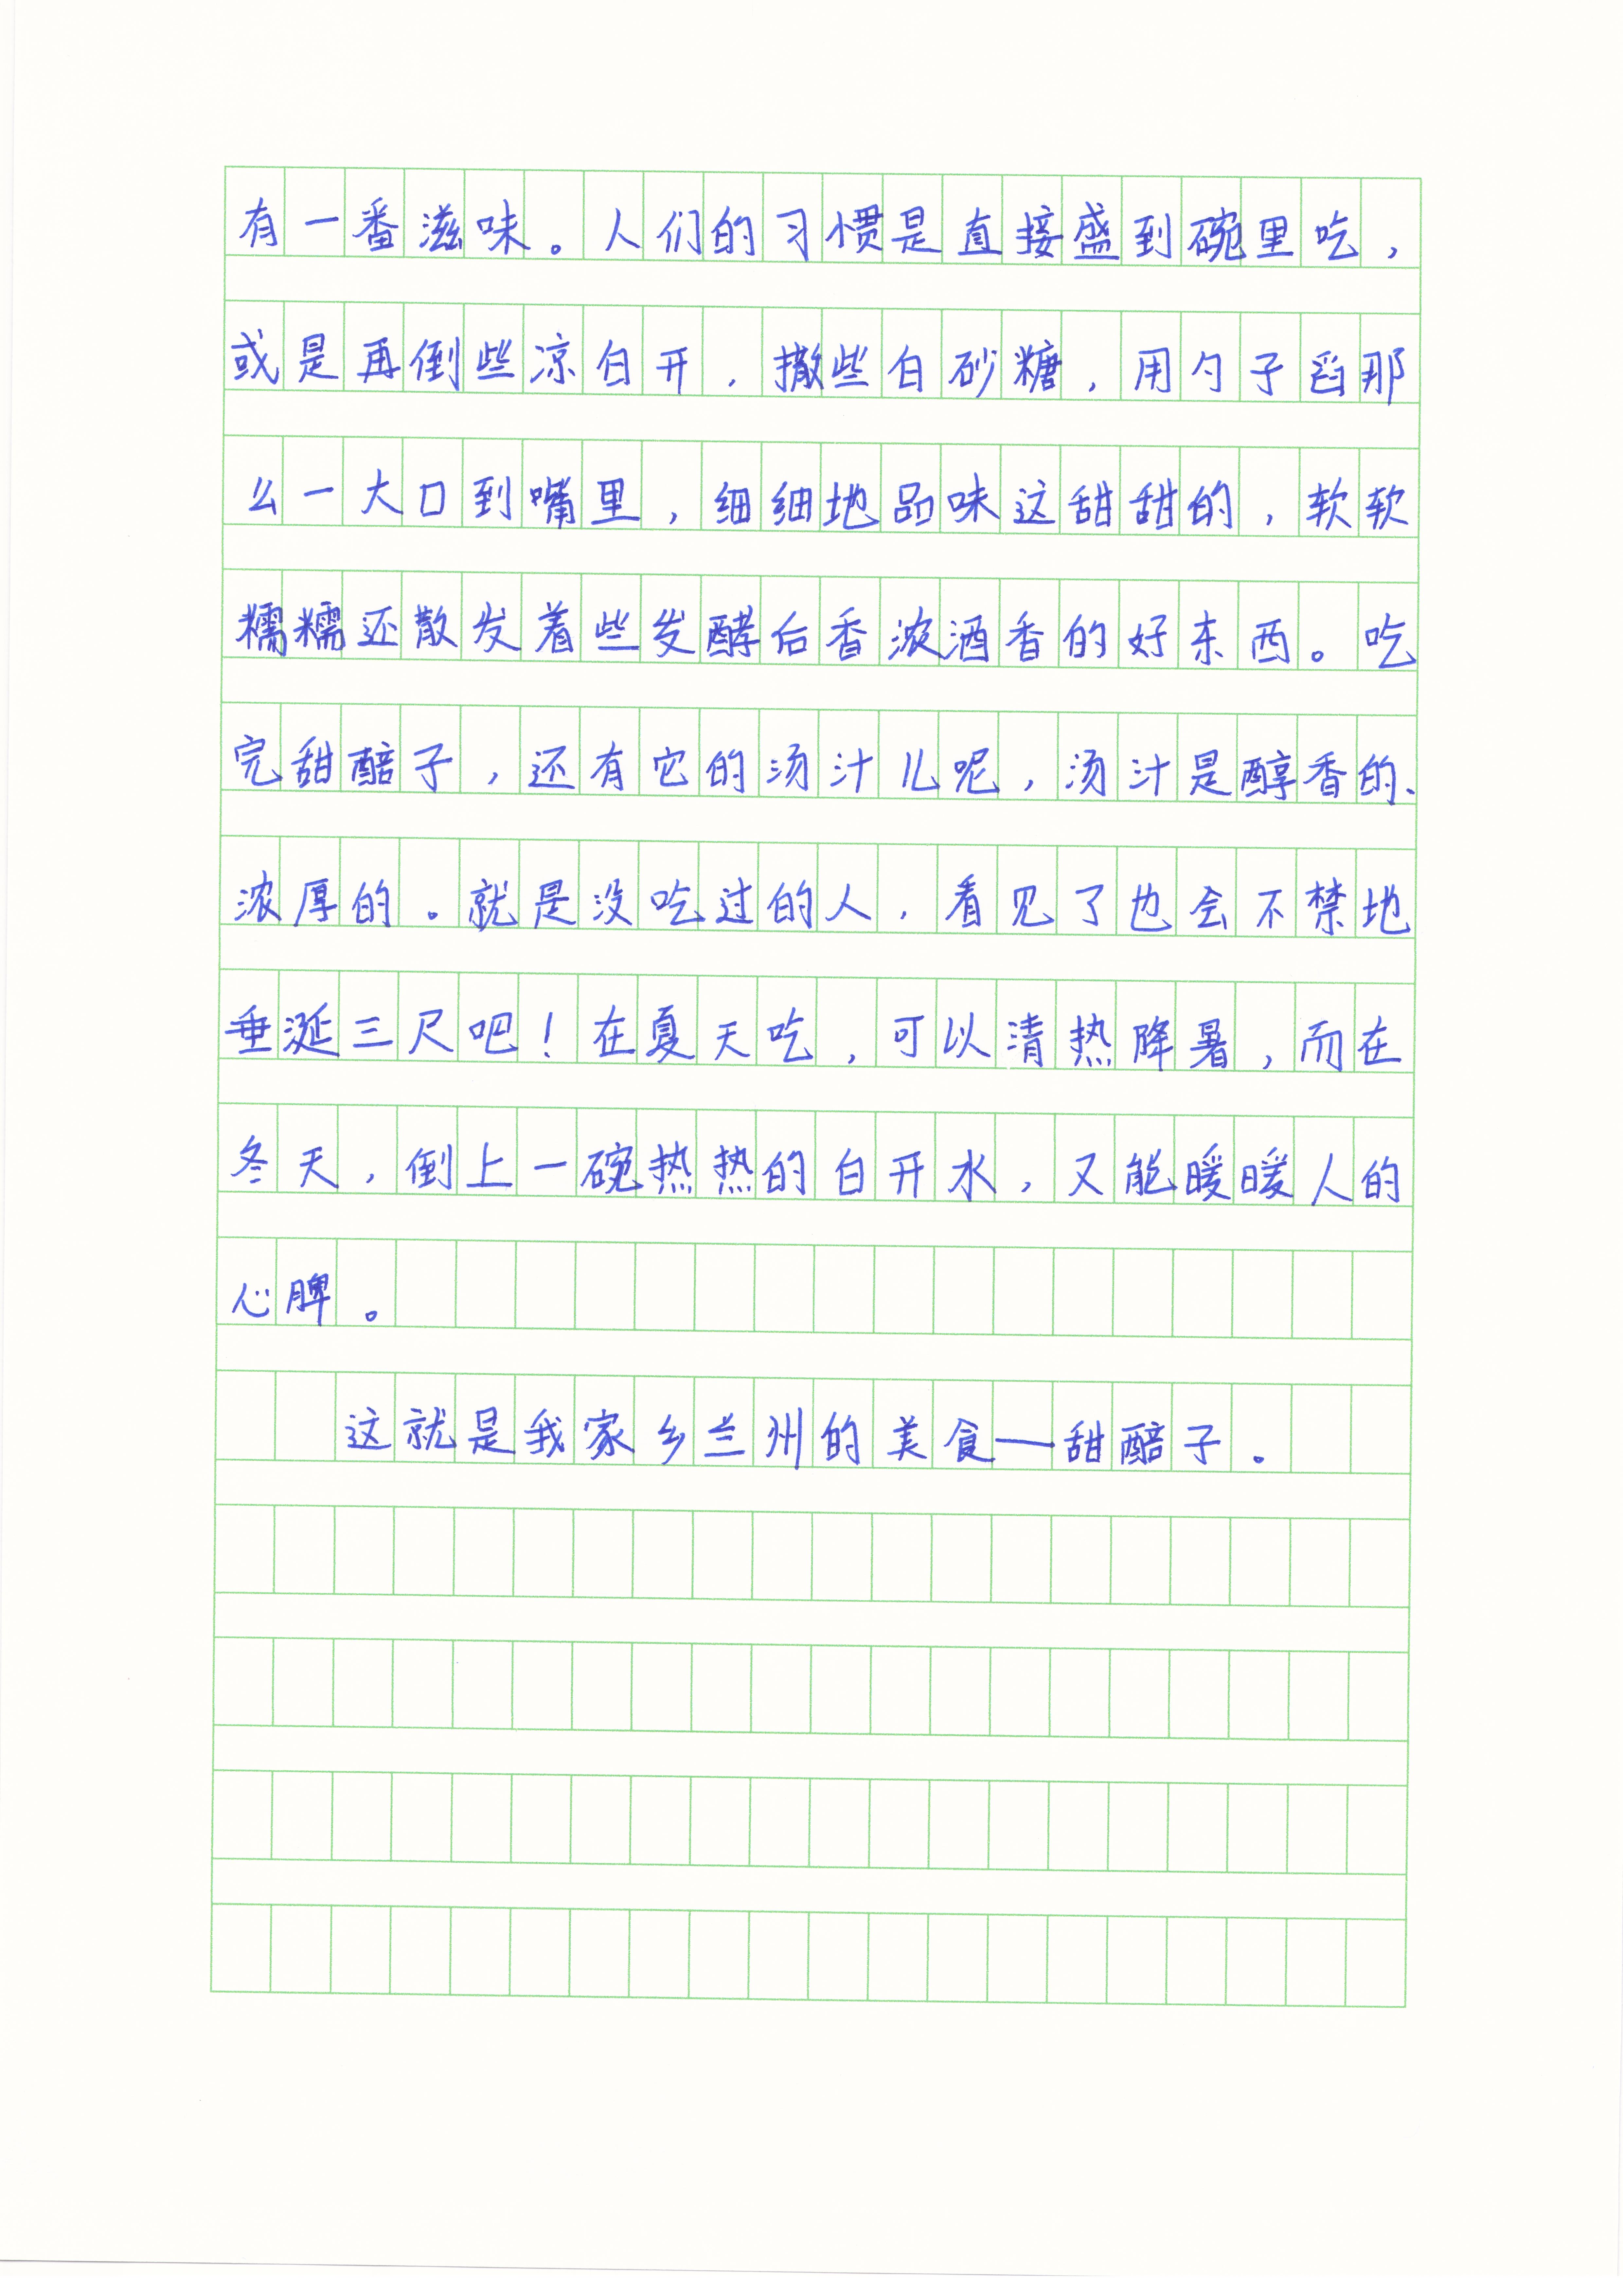 有一番滋味。人们的习惯是直接盛到碗里吃，
或是再倒些凉白开，撒些白砂糖，用勺子舀那
么一大口到嘴里，细细地品味这甜甜的，软软
糯糯还散发着些发酵后香浓酒香的好东西。吃
完甜醅子，还有它的汤汁儿呢，汤汁是醇香的、
浓厚的。就是没吃过的人，看见了也会不禁地
垂涎三尺吧！在夏天吃，可以清热降暑，而在
冬天，倒上一碗热热的白开水，又能暖暖人的
心脾。
这就是我家乡兰州的美食—甜醅子。